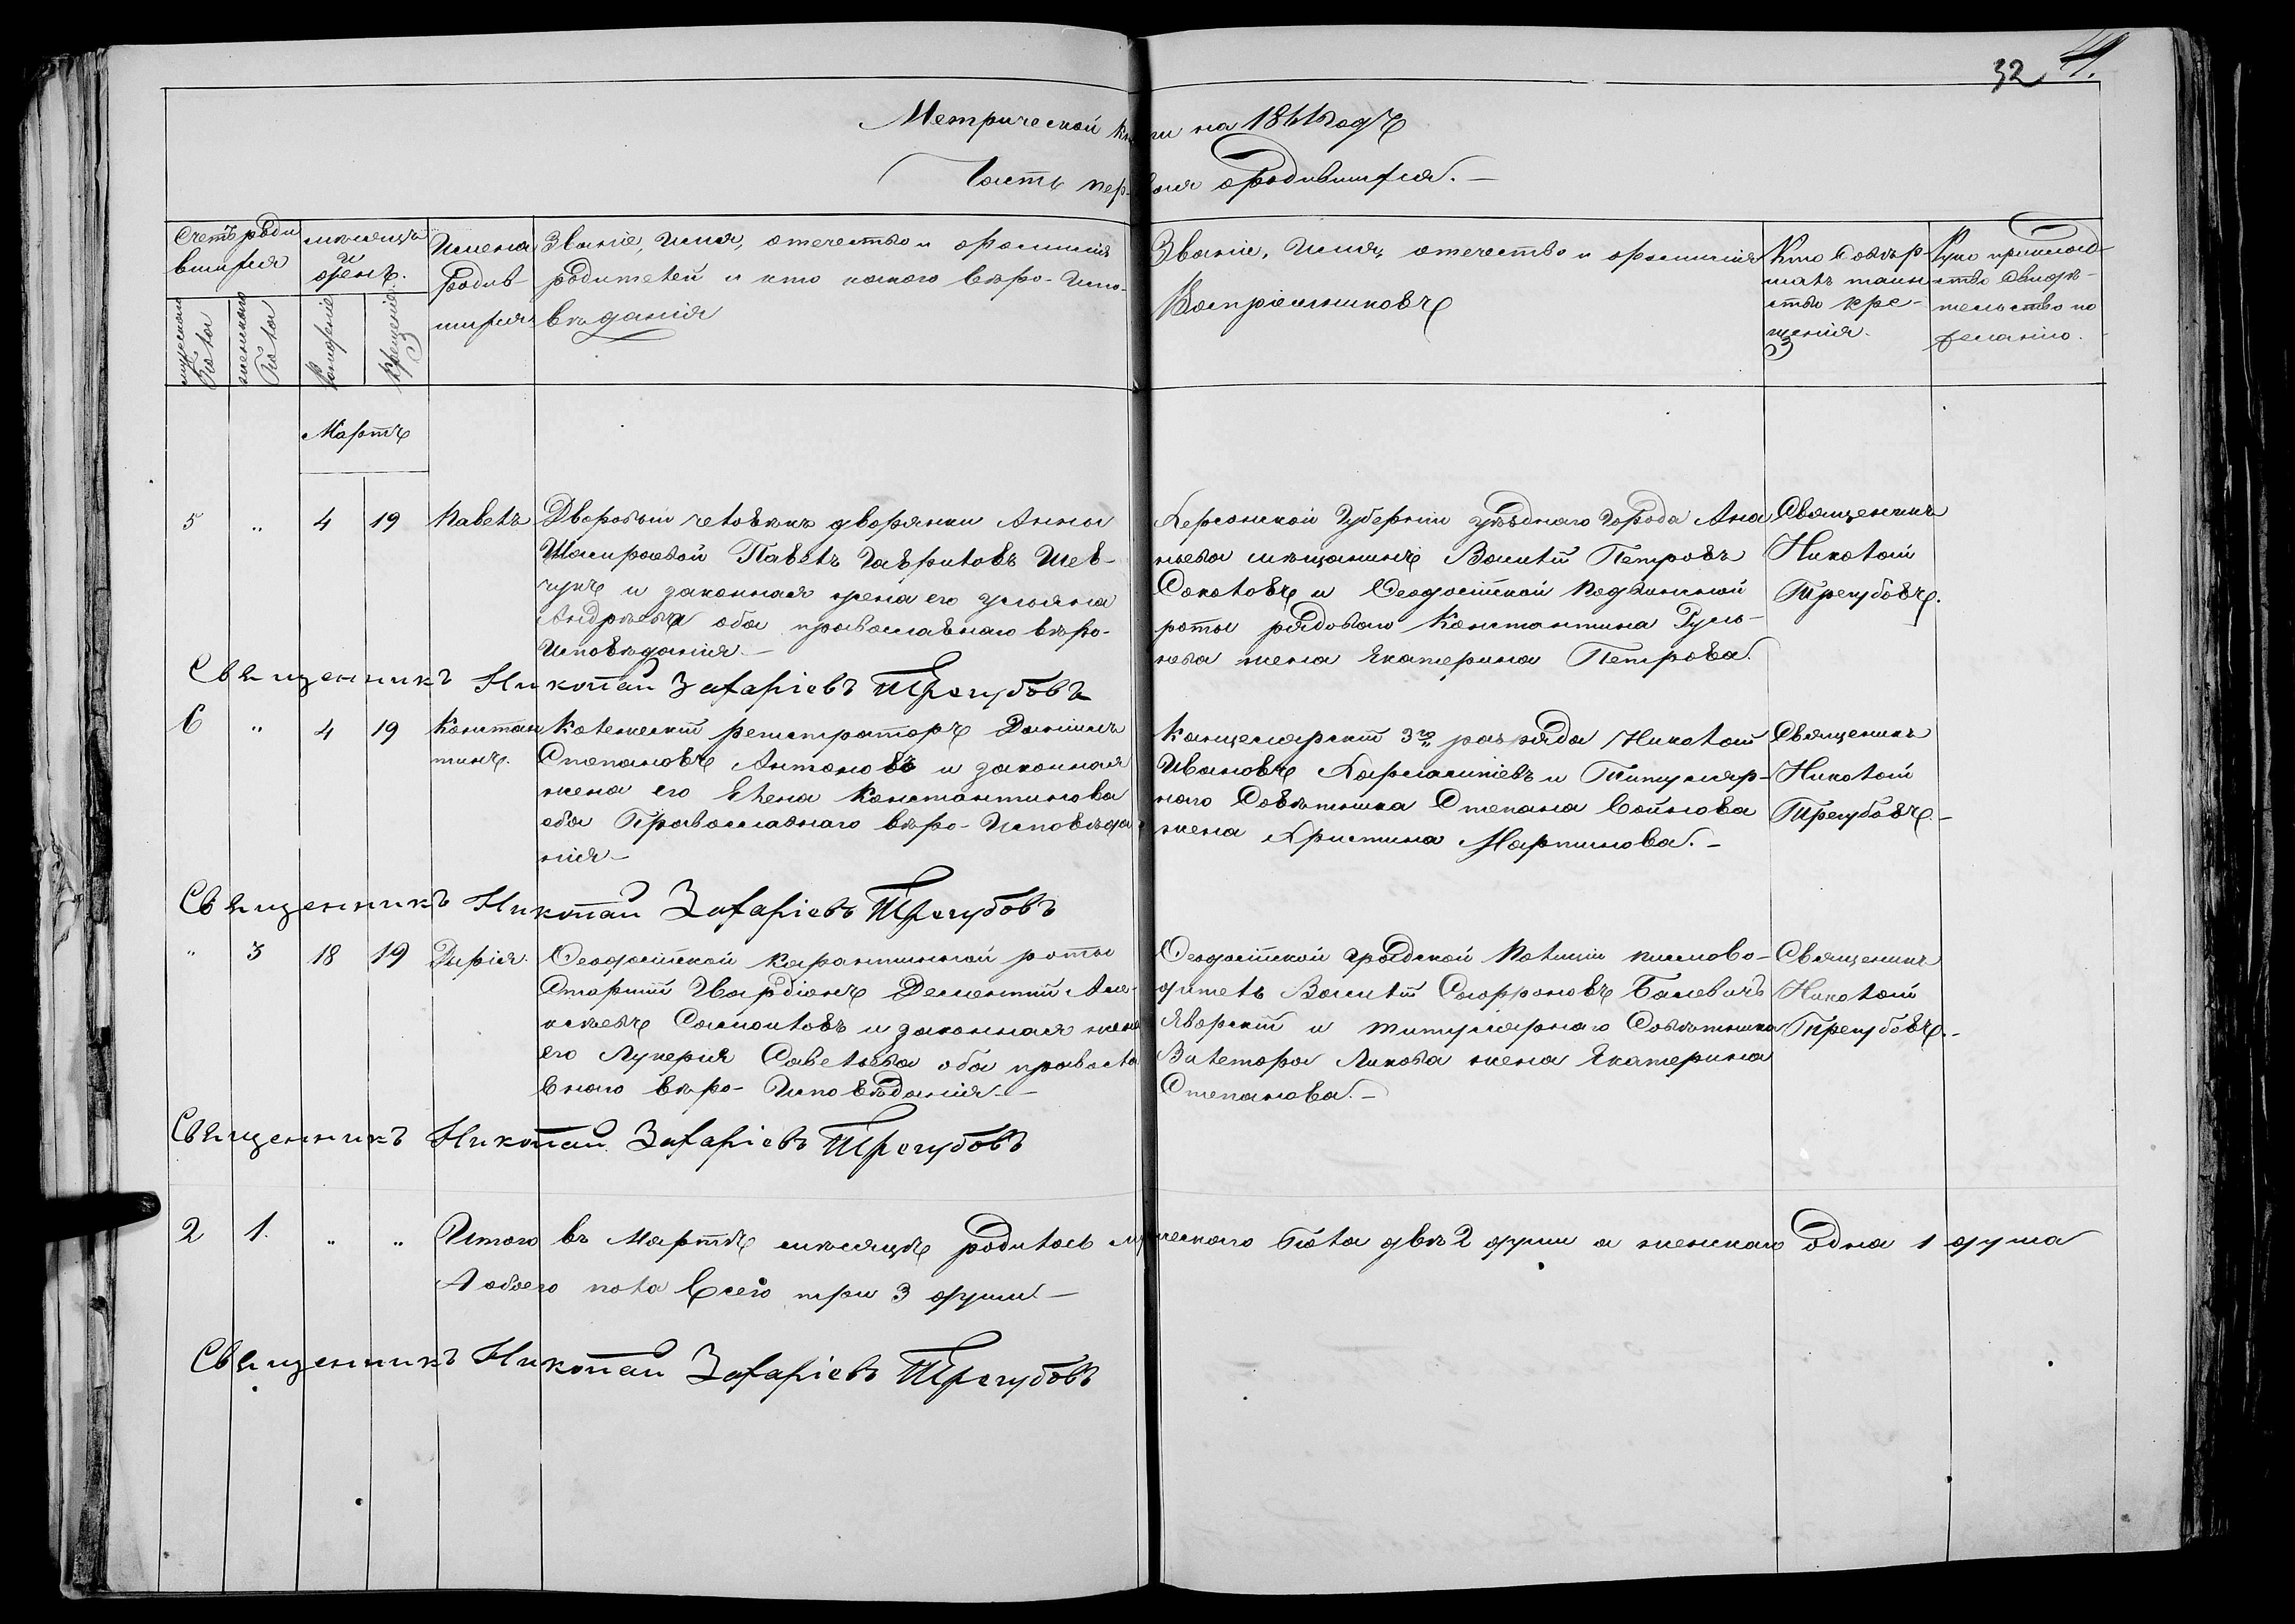 32 41.
Метрической книги на 1844 годъ
Часть первая о родившихся. —
Счетъ роди
вшихся
мужескаго
Пола
женскаго
Пола
мѣсяцъ
и
день.
Рожденіе
Крещеніе
Имена
Родив-
шихся
Званіе, Имя, отечество и фамилія
родителей и кто какого вѣро-Испо-
вѣданія
Званіе, Имя, отечество и фамилія
Воспріемниковъ
Кто Соверъ-
шалъ таин
ство кре-
щенія.
Руко приклад-
ство Свидѣ-
тельство по
желанію.
Мартъ
5 „ 4 19 Павелъ
Дворовый человѣкъ дворянки Анны
Павелъ Гавриловъ Шев-
чукъ и законная жена его Ульяна
Андрѣева оба православнаго вѣро-
Исповѣданія —
Херсонской Губерніи уѣзднаго Города Ана
ньева мѣщанинъ Василій Петровъ
Соколовъ и Ѳеодосійской
роты рядоваго Константина
жена Екатерина Петрова.
Священникъ
Николай
Трегубовъ.
Священникъ Николай Захаріевъ Трегубовъ
6 „ 4 19 Констан
тинъ.
Колежскій регистраторъ Даніилъ
Степановъ Антоновъ и законная
жена его Елена Константинова
оба Православнаго вѣро-Исповѣда
нія —
Канцелярскій 3го разряда Николай
Ивановъ и Титуляр-
наго Совѣтника Степана Войнова
жена Христина Мартинова. —
Священикъ
Николай
Трегубовъ. —
Священникъ Николай Захаріевъ Трегубовъ
„ 3 18 19 Дарія.
Ѳеодосійской Карантинной роты
Старшій Гвардіонъ Дементій Але-
ксѣевъ Самойловъ и законная жена
его Лукерія Савельева оба правосла
внаго вѣро-Исповѣданія —
Ѳеодосійской градской Полиціи письмово-
дитель Василій Софроновъ Балевичъ
Яворскій и титулярнаго Совѣтника
жена Екатерина
Степанова. —
Священикъ
Николай
Трегубовъ. —
Священникъ Николай Захаріевъ Трегубовъ
2 1. „ „ Итого въ Мартѣ мѣсяцѣ родилось мужескаго Пола двѣ 2 души а женскаго Одна 1 душа
А обоего пола Всего три 3 души —
Священникъ Николай Захаріевъ Трегубовъ